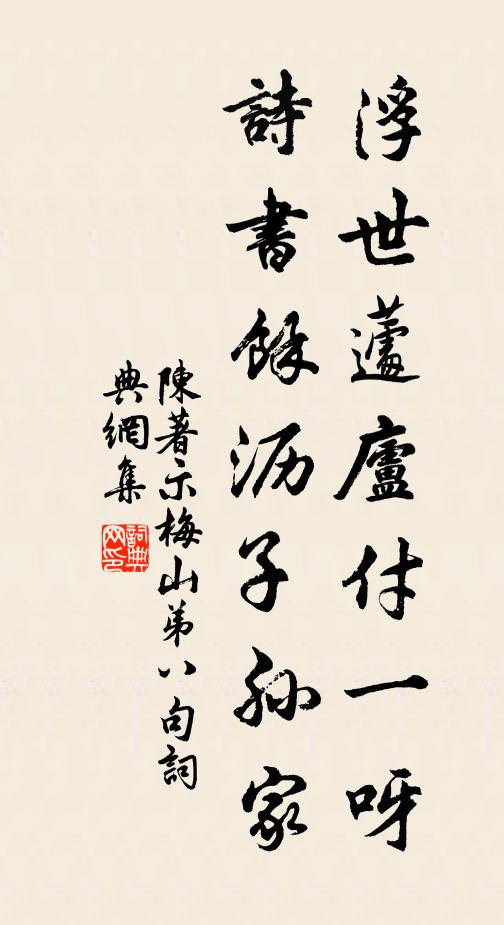 浮世蘧廬付一呀
詩書餘沥子孫家
陳著示梅山弟八句詞
典網集
詞典
网印